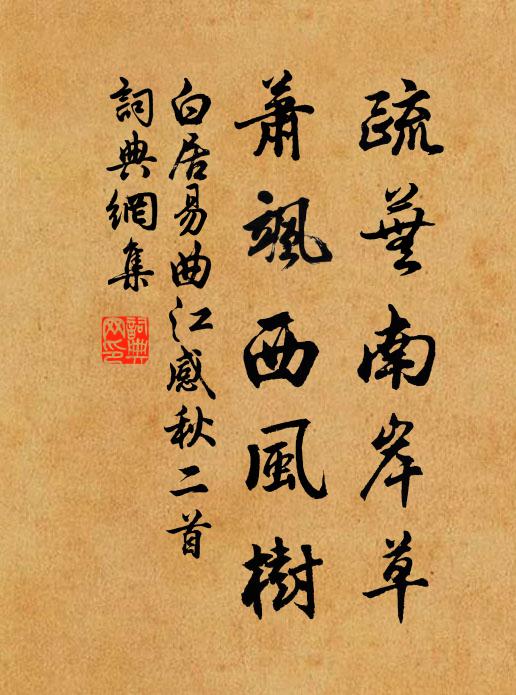 疏蕪南岸草
蕭颯西風樹
白居易曲江感秋二首
詞典網集
詞典網印